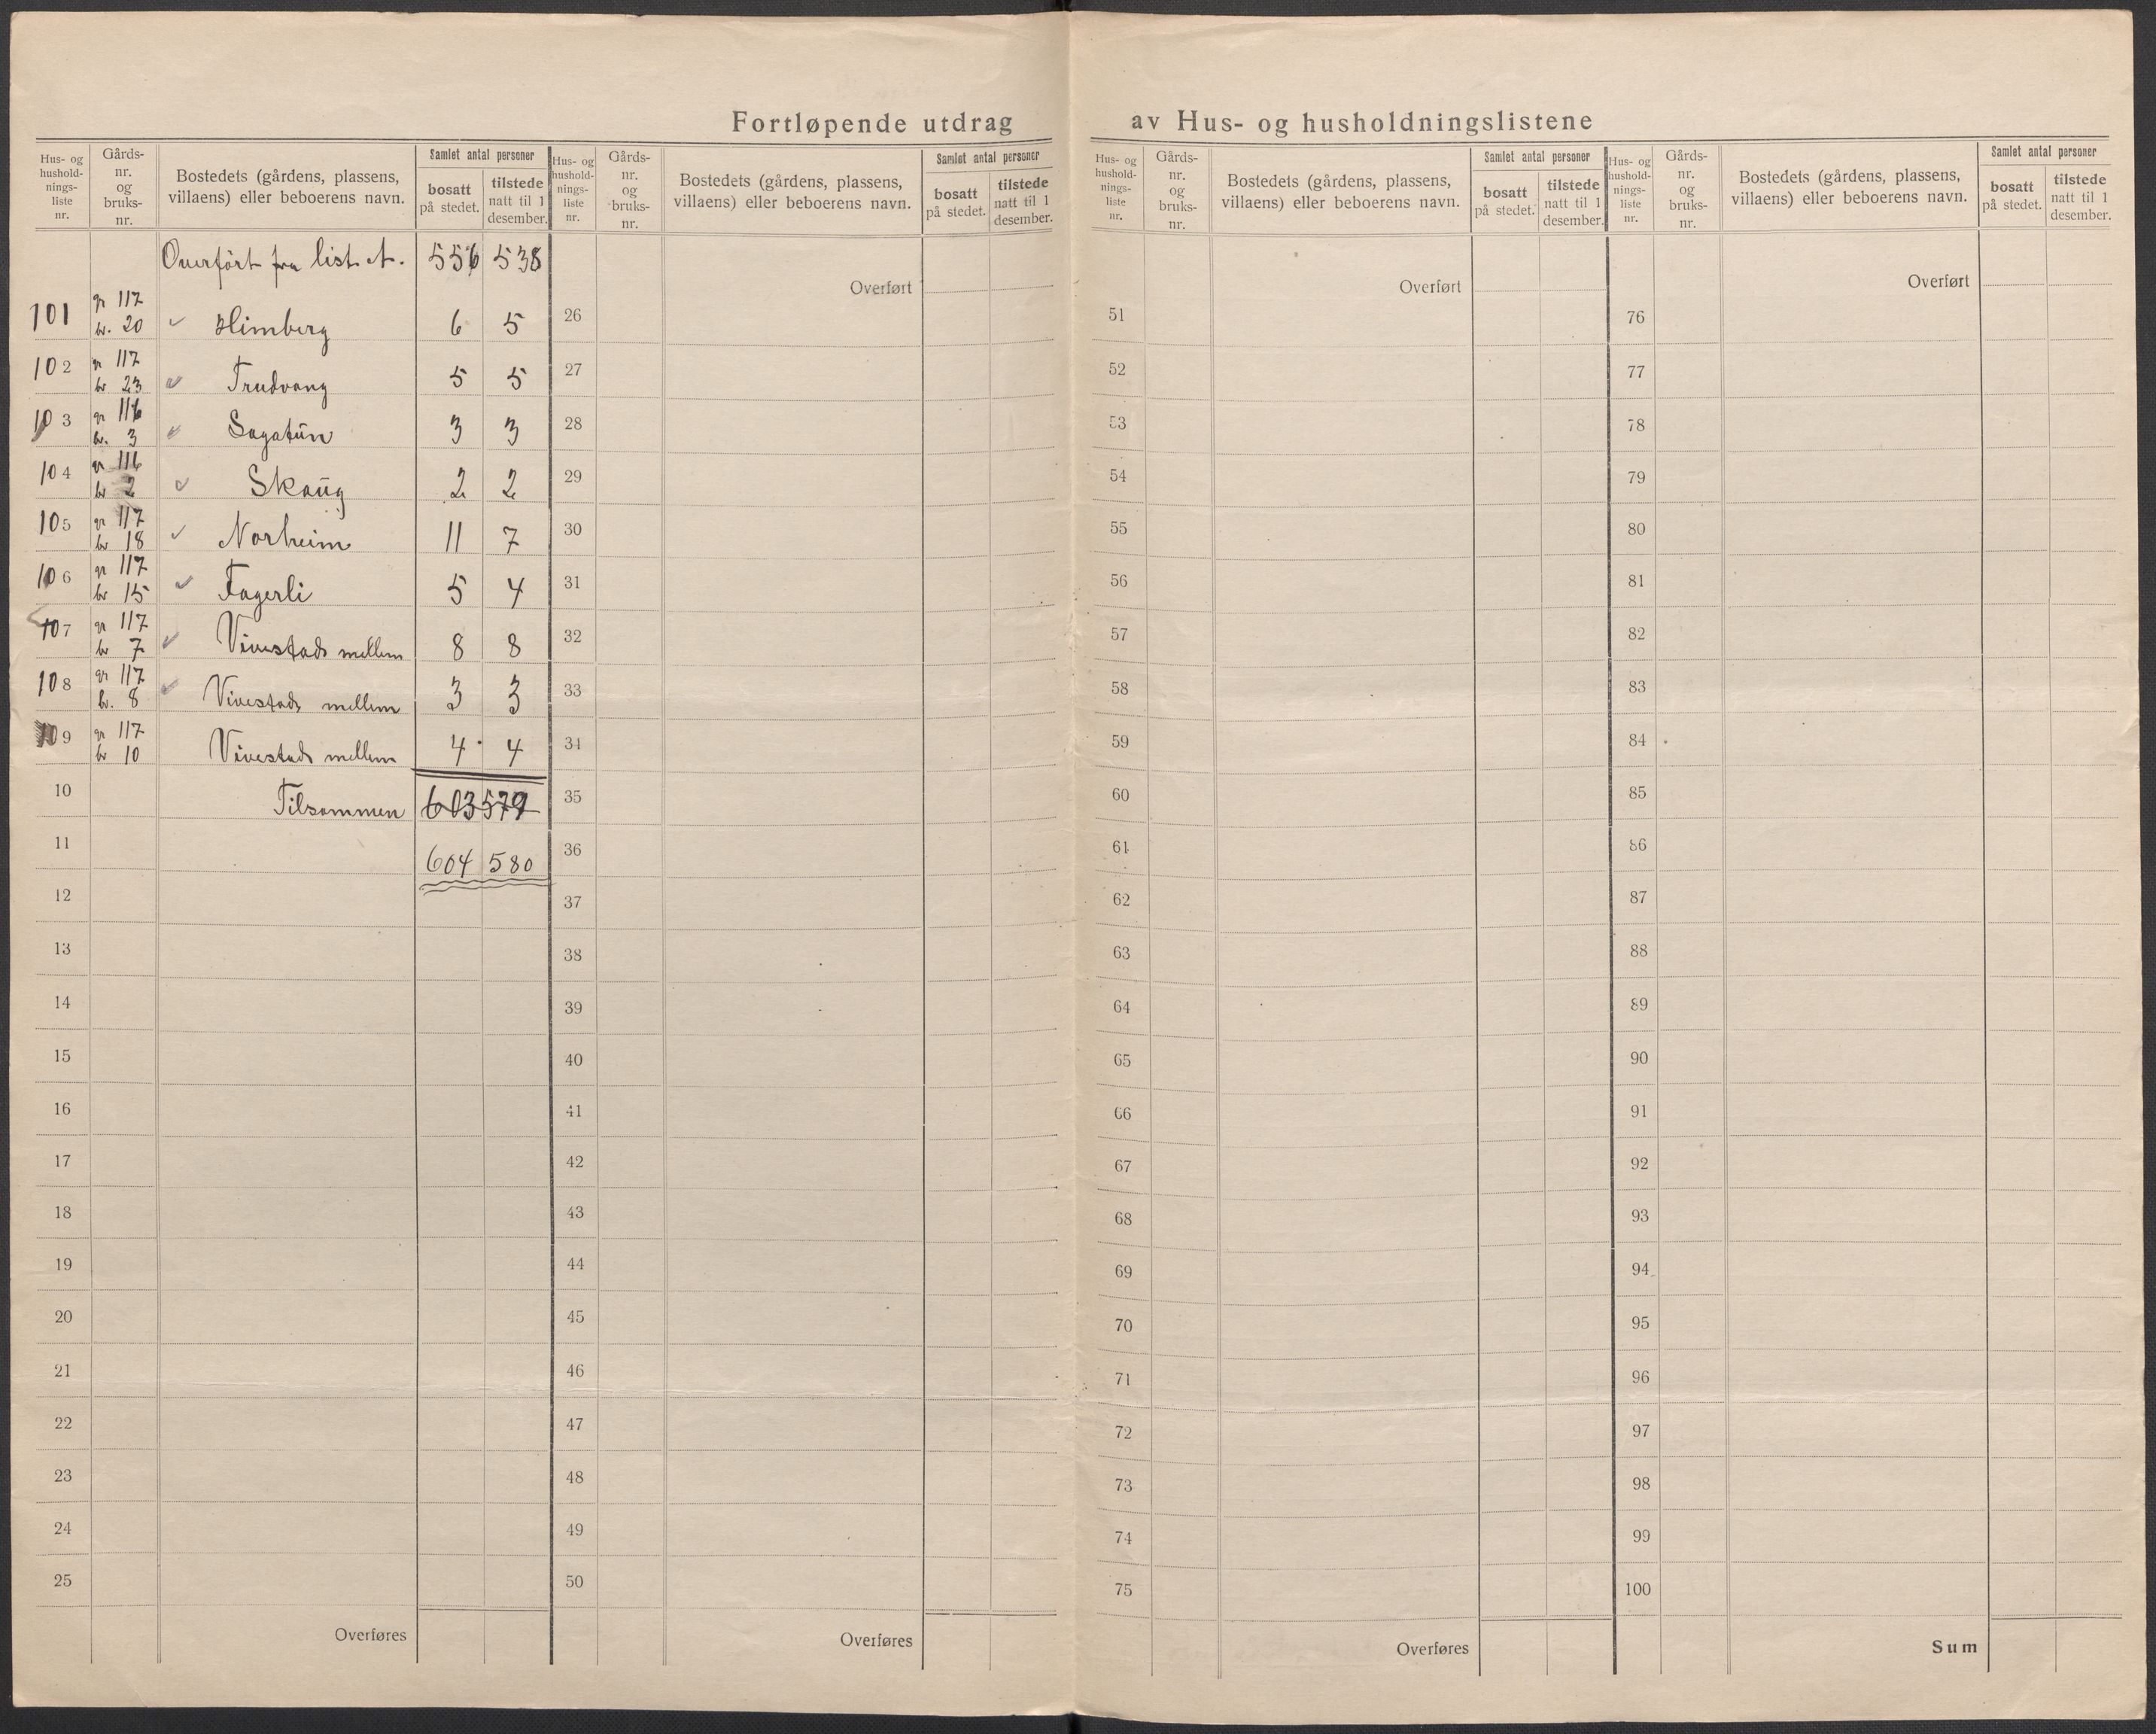 Fortløpende utdrag av Hus- og husholdningslistene
Hus- og hushold- nings- liste nr.
Gårds- nr. og bruks- nr.
Bostedets (gårdens, plassens, villaens) eller beboerens navn.
Samlet antal personer
bosatt på stedet.
tilstede natt til 1 desember
Overført fra list. A. 556 538
101 gr 117 br. 20 Himberg 6 5
102 gr 117 br 23 Trudvang 5 5
103 gr 116 br. 3 Sagatun 3 3
104 gr 116 br 2 Skaug 2 2
105 gr 117 br 18 Norheim 11 7
106 gr 117 br 15 Fagerli 5 4
107 gr 117 br 7 Vivestad mellem 8 8
108 gr 117 br. 8 Vivestad mellem 3 3
109 gr 117 br 10 Vivestad mellem 4 4
10 Tilsammen 603 579
11 604 580
12
13
14
15
16
17
18
19
20
21
22
23
24
25
Overføres
Hus- og hushold- nings- liste nr.
Gårds- nr. og bruks- nr.
Bostedets (gårdens, plassens, villaens) eller beboerens navn.
Samlet antal personer
bosatt på stedet.
tilstede natt til 1 desember.
Overført
26
27
28
29
30
31
32
33
34
35
36
37
38
39
40
41
42
43
44
45
46
47
48
49
50
Overføres
Hus- og hushold- nings- liste nr.
Gårds- nr. og bruks- nr.
Bostedets (gårdens, plassens, villaens) eller beboerens navn.
Samlet antal personer
bosatt på stedet.
tilstede natt til 1 desember.
Overført
51
52
53
54
55
56
57
58
59
60
61
62
63
64
65
66
67
68
69
70
71
72
73
74
75
Overføres
Hus- og hushold- nings- liste nr.
Gårds- nr. og bruks- nr.
Bostedets (gårdens, plassens, villaens) eller beboerens navn.
Samlet antal personer
bosatt på stedet.
tilstede natt til 1 desember.
Overført
76
77
78
79
80
81
82
83
84
85
86
87
88
89
90
91
92
93
94
95
96
97
98
99
100
Sum